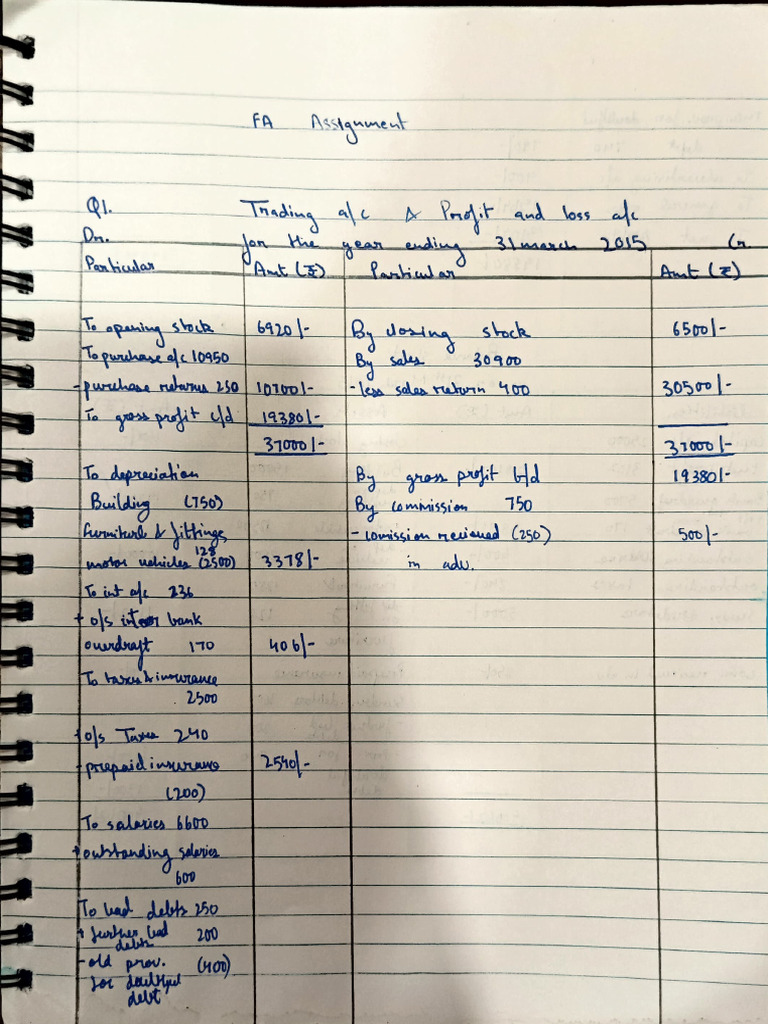 FA Assignment
Q1. Trading a/c & Profit and loss a/c
Dr. for the year ending 31 march 2015 Cr
Particular Amt (₹) Particular Amt (₹)
To opening stock 6920/- By closing stock 6500/-
To purchase a/c 10950 By sales 30900
- purchase returns 250 10700/- - less sales return 400 30500/-
To gross profit c/d 19380/-
37000/- 37000/-
To depreciation By gross profit b/d 19380/-
Building (750) By commission 750
furniture & fittings - comission recieved (250) 500/-
128
motor vehicles (2500) 3378/- in adv.
To int a/c 236
+ o/s int bank
overdraft 170 406/-
To taxes & insurance
2500
+ o/s Taxes 240
- prepaid insurance 2540/-
(200)
To salaries 6600
+ outstanding salaries
600
To bad debts 250
+ further bad 200
debts
- old prov. (400)
for doubtful
debt